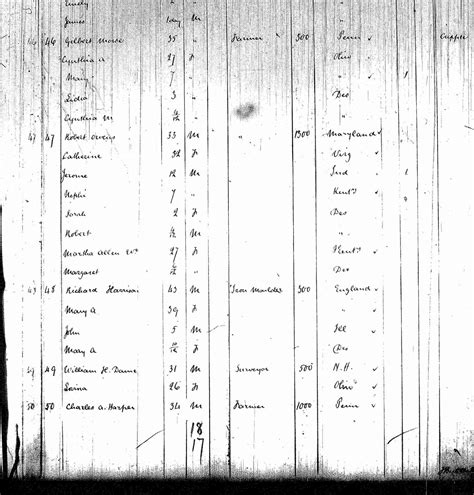 Emily "
James 1day M
46 46 Gilbert Morse 35 " Farmer 300 Penn Cripple
Cynthia A 27 F Ohio
Mary 7 " " 1
Lidia 3 " Do
Cynthia M "
47 47 Robert Owens 33 M " 1300 Maryland
Catherine 32 F Virg
Jerome 12 M Ind 1
Nephi 7 " Kent 1
Sarah 2 F Do
Robert M "
Martha Allen 27 F Kent
Margaret " Do
48 48 Richard Harrison 43 M Iron Moulder 300 England
Mary A 39 F "
John 5 M Ill
Mary A F Do
49 49 William H. Dame 31 M Surveyor 500 N.H.
Lovina 26 F Ohio
50 50 Charles A. Harper 34 M Farmer 1000 Penn
18
17